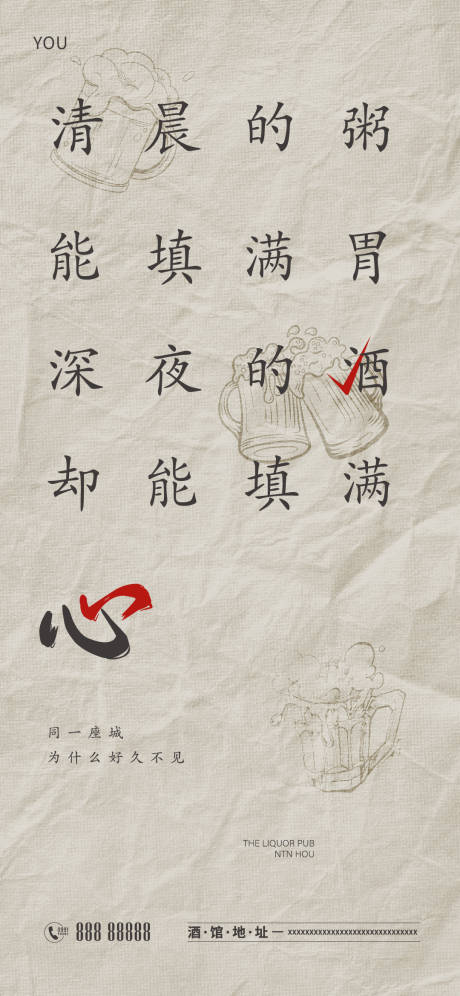 YOU
清晨的粥
能填满胃
深夜的酒
却能填满
心
同一座城
为什么好久不见
THE LIQUOR PUB
NTN HOU
888 88888
酒·馆·地·址一 xxxxxxxxxxxxxxxxxxxxxxxxxxxxxx